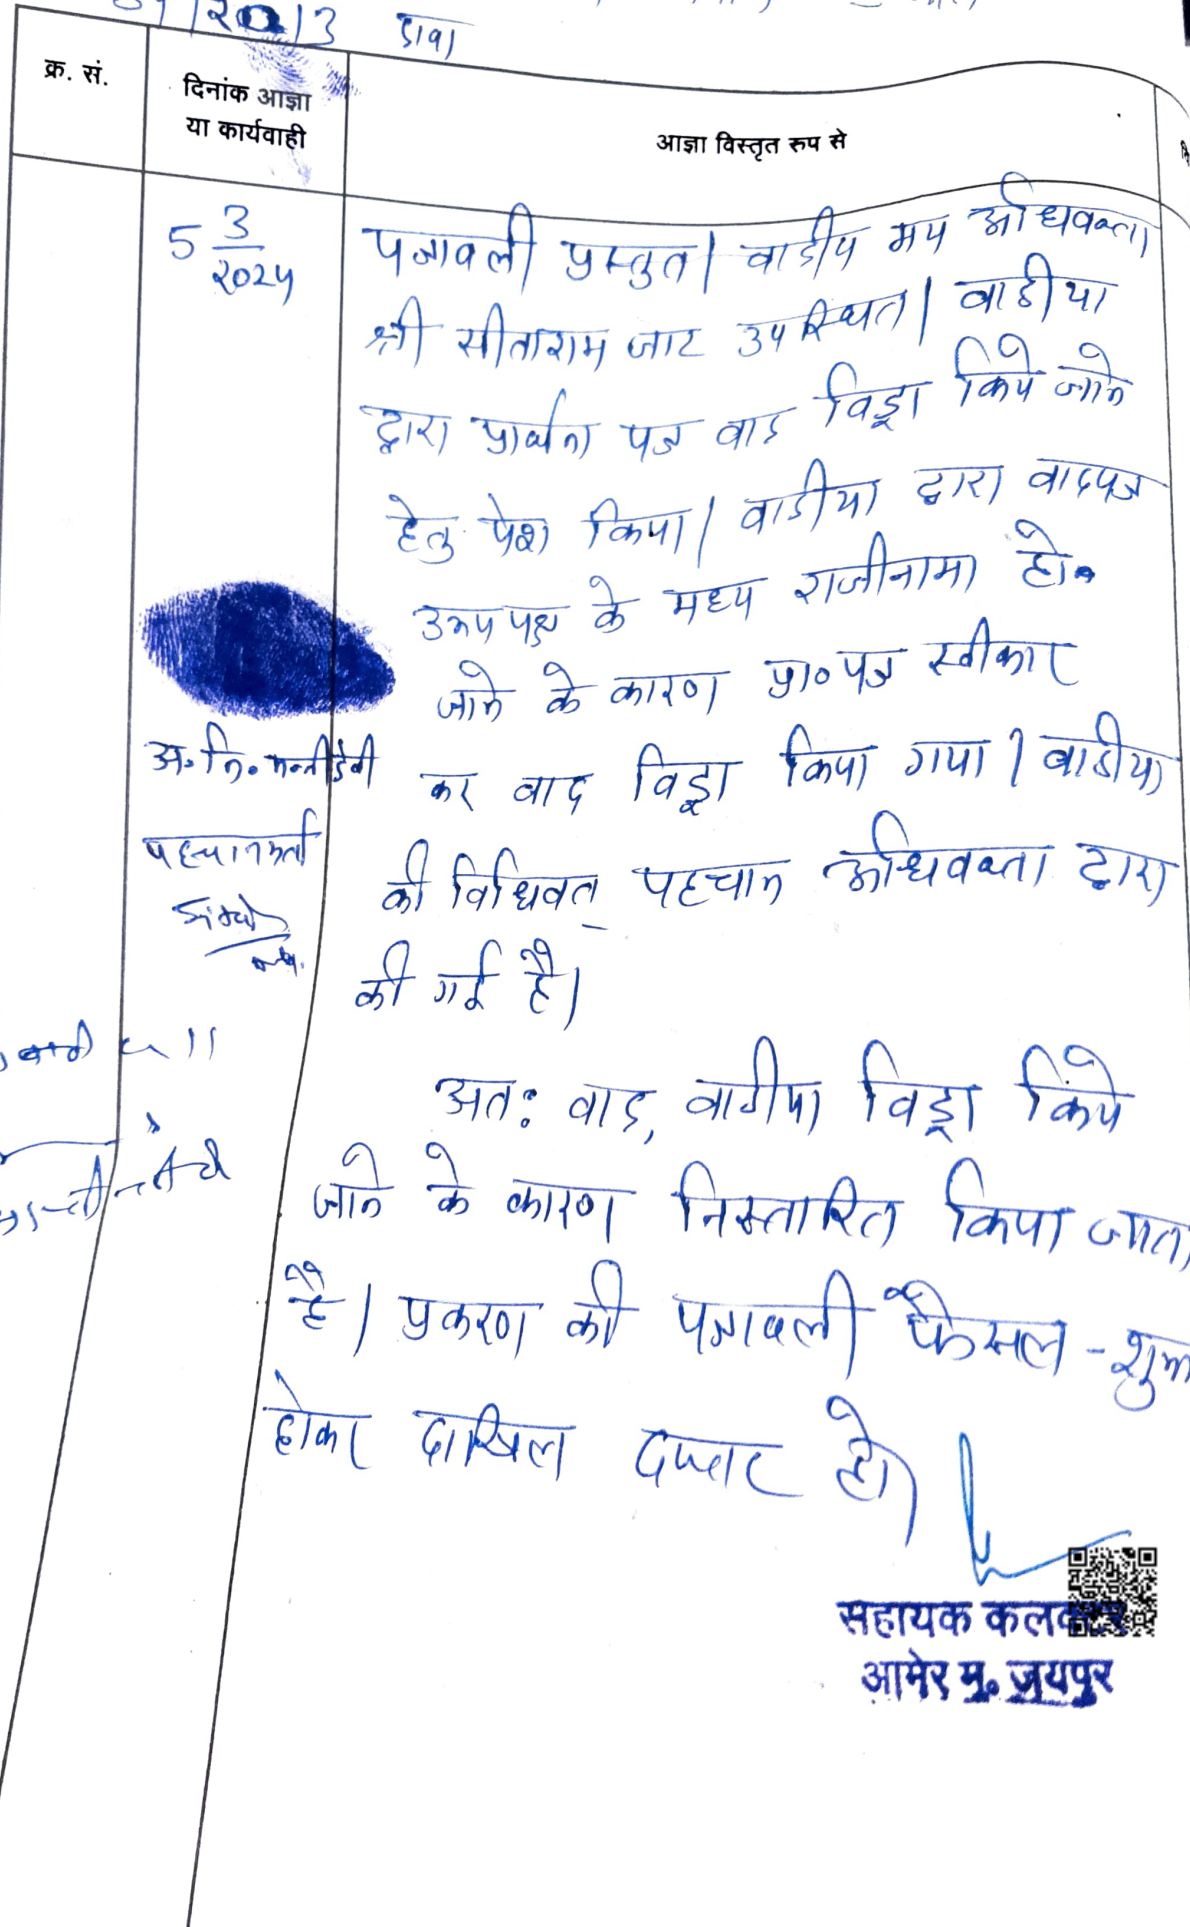 2013 दावा
क्र. सं.
दिनांक आज्ञा
या कार्यवाही
आज्ञा विस्तृत रुप से
5 3/2024
पत्रावली प्रस्तुत। वादीया मय अधिवक्ता
श्री सीताराम जाट उपस्थित। वादीया
द्वारा प्रार्थना पत्र वाद विड्रा किये जाने
हेतु पेश किया। वादीया द्वारा वादपत्र
उभयपक्ष के मध्य राजीनामा हो
जाने के कारण प्रा० पत्र स्वीकार
कर वाद विड्रा किया गया। वादीया
की विधिवत् पहचान अधिवक्ता द्वारा
की गई है।
अ. नि.
पहचानकर्ता
अतः वाद, वादीया विड्रा किये
जाने के कारण निस्तारित किया जाता
है। प्रकरण की पत्रावली फैसल-शुमार
होकर दाखिल दफ्तर हो।
सहायक कलक्टर
आमेर मु. जयपुर